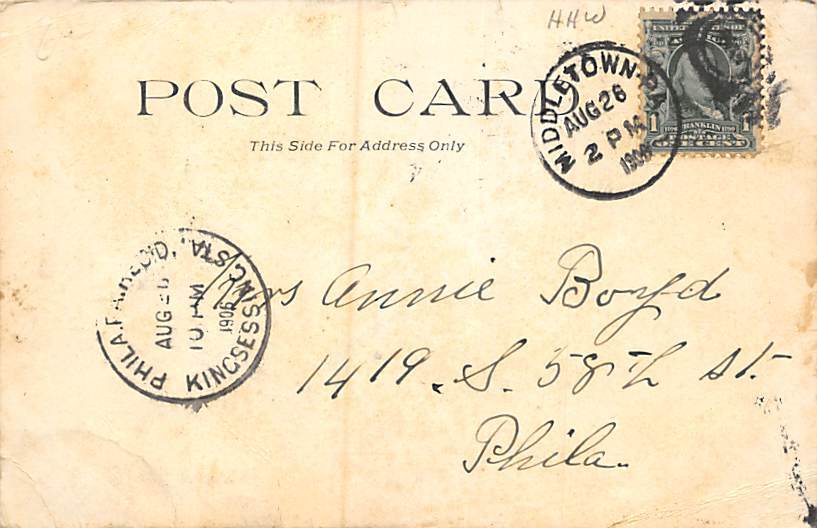 HHW
POST CARD
This Side For Address Only
MIDDLETOWN PA.
AUG 26
2 PM
1906
UNITED STATES OF AMERICA
FRANKLIN
1 POSTAGE 1
ONE CENT
PHILA. P.A. REC'D.
KINGSESSING STA.
AUG 26
10 PM
1906
Mrs Annie Boyd
1419. S. 58th St.
Phila.